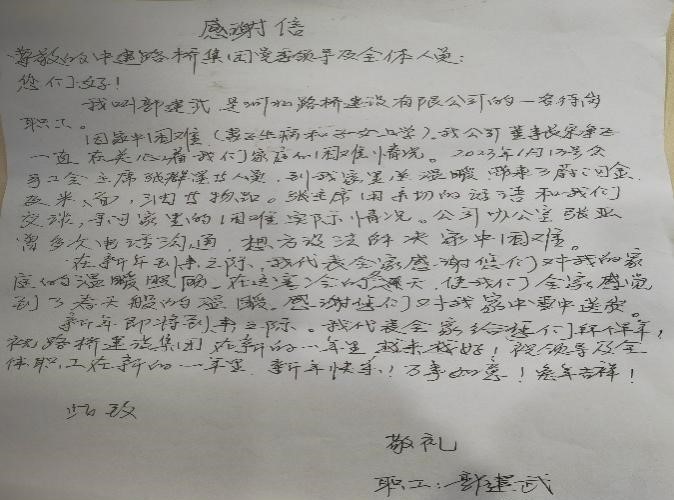 感谢信
尊敬的中建路桥集团党委领导及全体人员：
您们好！
我叫郭建武 是河北路桥建设有限公司的一名待岗
职工。
因家中困难（妻子生病和子女上学）。我公司董事长
一直在关心着我们家庭的困难情况。2023年1月13号公
司工会主席张群莲等人员，到我家里送温暖 带来了慰问金
及米、面、油等物品。张主席用亲切的话语和我们
交谈，寻问家里的困难实际情况。公司办公室张亚
曾多次电话沟通，想方设法解决家中困难。
在新年到来之际，我代表全家感谢您们对我的家
庭的温暖照顾。在这寒冷的冬天 使我们全家感觉
到了春天般的温暖。感谢您们对我家中雪中送炭。
新年即将到来之际。我代表全家给您们拜个早年，
祝路桥建设集团 在新的一年里 越来越好！祝领导及全
体职工在新的一年里 新年快乐！万事如意！兔年吉祥！
此致
敬礼
职工：郭建武